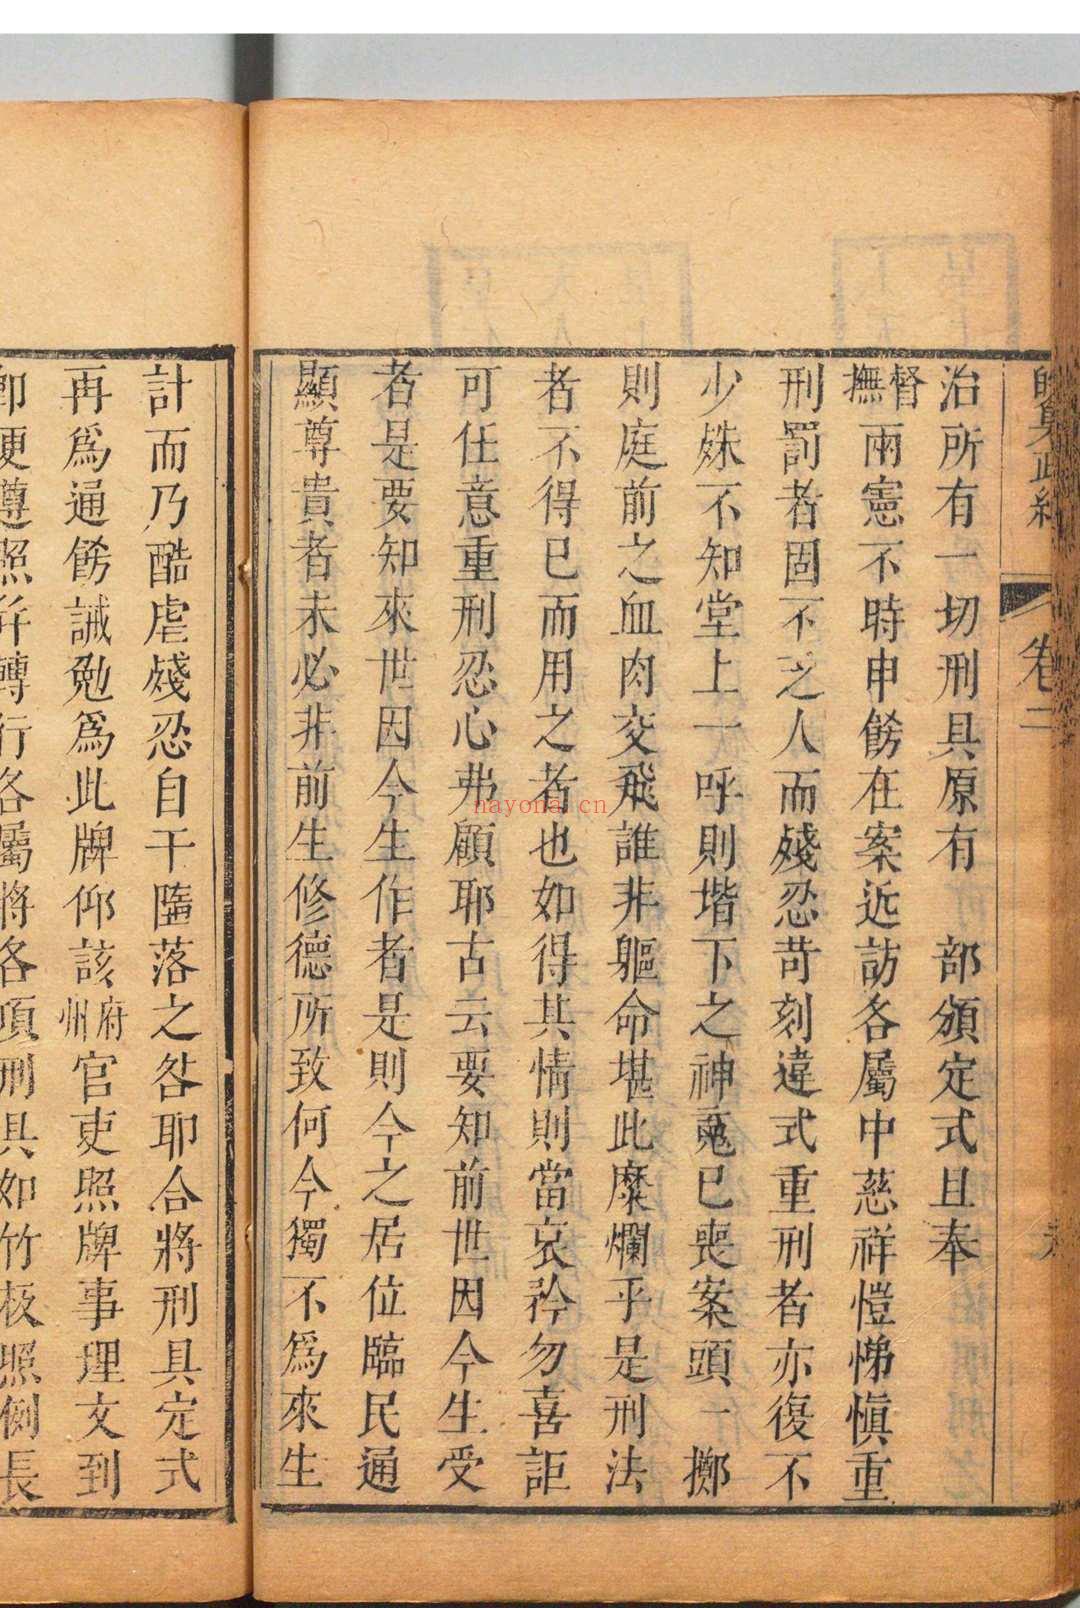 卷二
治所有一切刑具原有　部頒定式且奉
督撫兩憲不時申飭在案近訪各屬中慈祥愷悌慎重
刑罰者固不乏人而殘忍苛刻違式重刑者亦復不
少殊不知堂上一呼則堦下之神魂已喪案頭一擲
則庭前之血肉交飛誰非軀命堪此糜爛乎是刑法
者不得已而用之者也如得其情則當哀矜勿喜詎
可任意重刑忍心弗顧耶古云要知前世因今生受
者是要知來世因今生作者是則今之居位臨民通
顯尊貴者未必非前生修德所致何今獨不爲來生
計而乃酷虐殘忍自干墮落之咎耶合將刑具定式
再爲通飭誡勉爲此牌仰該府州官吏照牌事理文到
卽便遵照幷轉行各屬將各項刑具如竹板照例長
nayona.cn